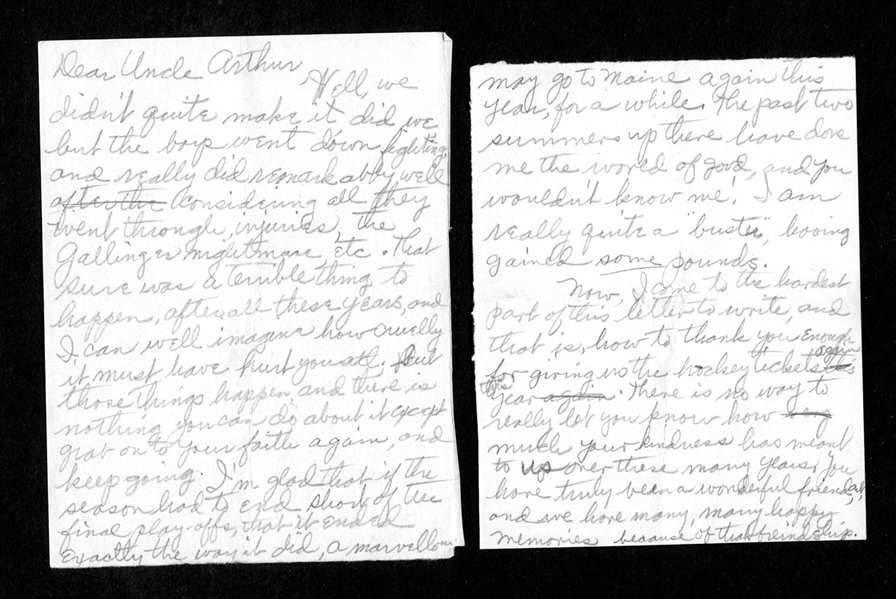 Dear Uncle Arthur
Well, we
didn't quite make it did we
but the boys went down fighting
and really did remarkably well
after the considering all they
went through, injuries, the
Gallinger nightmare, etc. That
sure was a terrible thing to
happen, after all these years, and
I can well imagine how cruelly
it must have hurt you all. But
those things happen, and there is
nothing you can do about it except
grat on to your faith again, and
keep going. I'm glad that if the
season had to end short of the
final play-offs, that it ended
exactly the way it did, a marvellous
may go to Maine again this
year, for a while. The past two
summers up there have done
me the world of good, and you
wouldn't know me! I am
really quite a "buster", having
gained some pounds.
Now, I come to the hardest
part of this letter to write, and
that is, how to thank you enough
again
for giving us the hockey tickets
this
year again. There is no way to
really let you know how very
much your kindness has meant
to us over these many years. You
have truly been a wonderful friend,
and we have many, many happy
memories because of that freindship.